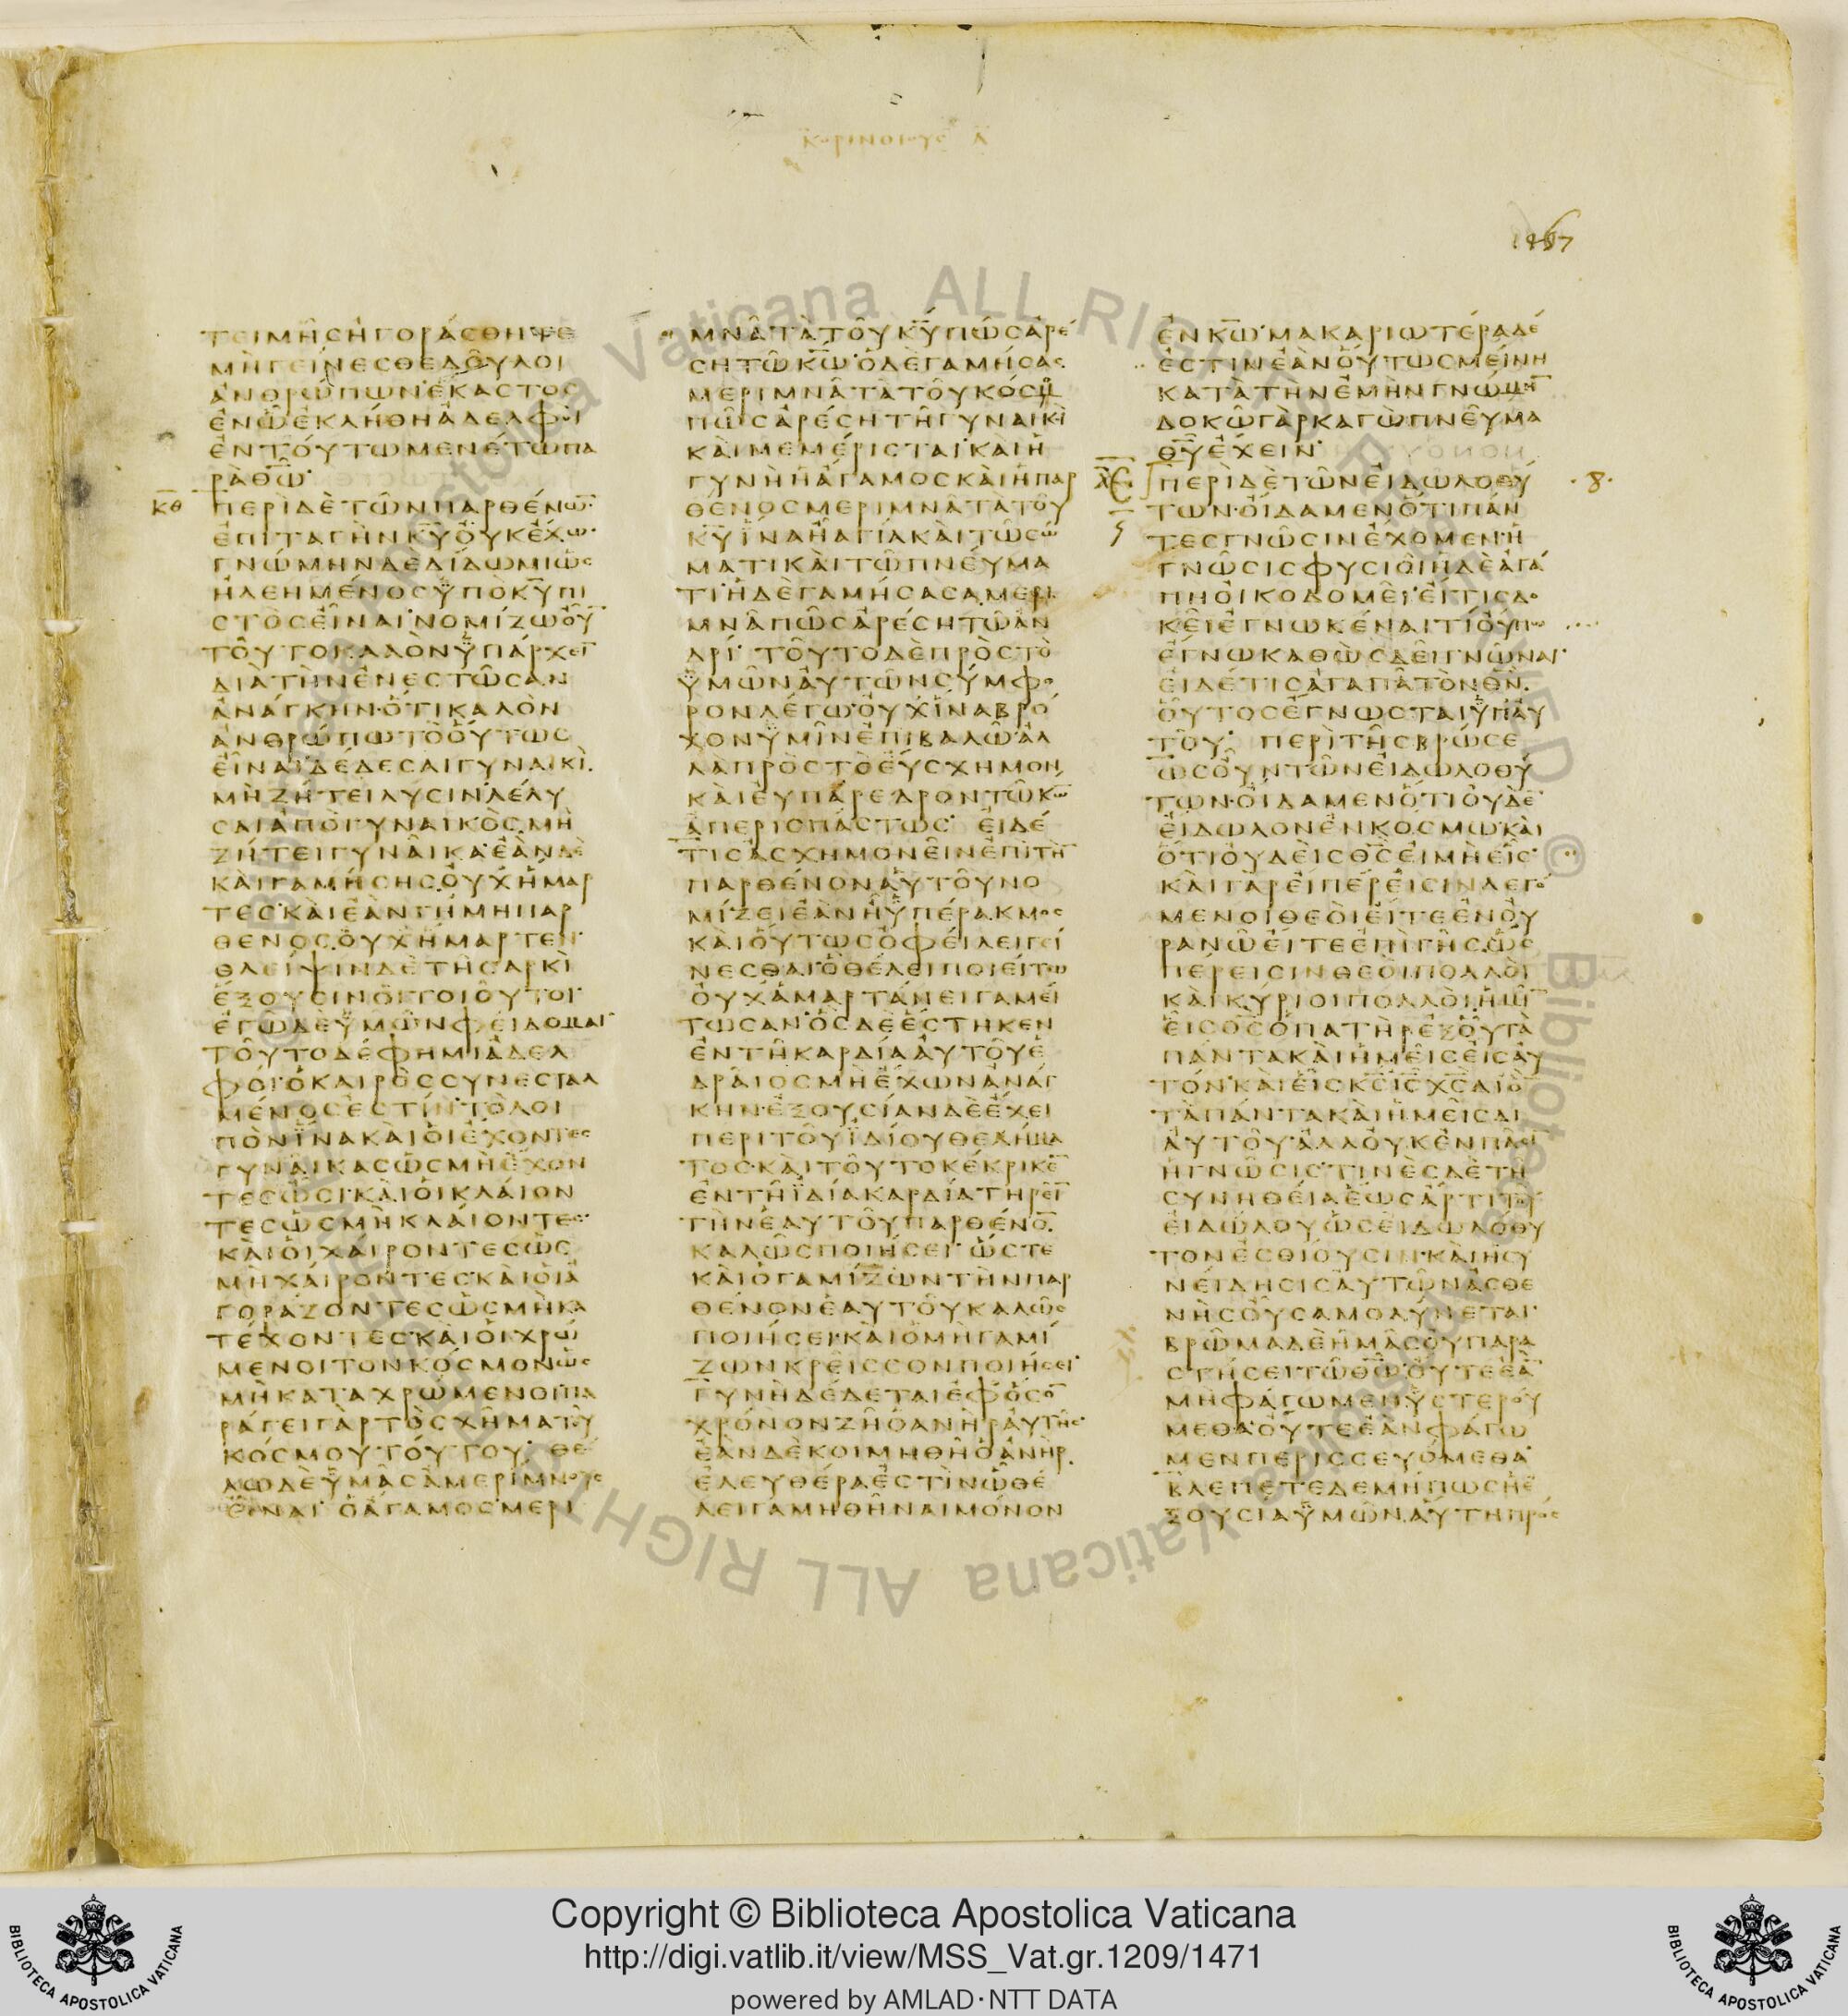 ΚΟΡΙΝΘΙΟΥΣ Α
1467
ΤΕΙΜΗΣΗΓΟΡΑΣΘΗΤΕ
ΜΗΓΕΙΝΕΣΘΕΔΟΥΛΟΙ
ΑΝΘΡΩΠΩΝΕΚΑΣΤΟΣ
ΕΝΩΕΚΛΗΘΗΑΔΕΛΦΟΙ
ΕΝΤΟΥΤΩΜΕΝΕΤΩΠΑ
ΡΑΘΩ
ΚΘ ΠΕΡΙΔΕΤΩΝΠΑΡΘΕΝΩ̅
ΕΠΙΤΑΓΗΝΚΥΟΥΚΕΧΩ
ΓΝΩΜΗΝΔΕΔΙΔΩΜΙΩΣ
ΗΛΕΗΜΕΝΟΣΥΠΟΚΥΠΙ
ΣΤΟΣΕΙΝΑΙΝΟΜΙΖΩΟΥ̅
ΤΟΥΤΟΚΑΛΟΝΥΠΑΡΧΕΙ̅
ΔΙΑΤΗΝΕΝΕΣΤΩΣΑΝ
ΑΝΑΓΚΗΝΟΤΙΚΑΛΟΝ
ΑΝΘΡΩΠΩΤΟΟΥΤΩΣ
ΕΙΝΑΙΔΕΔΕΣΑΙΓΥΝΑΙΚΙ
ΜΗΖΗΤΕΙΛΥΣΙΝΛΕΛΥ
ΣΑΙΑΠΟΓΥΝΑΙΚΟΣΜΗ
ΖΗΤΕΙΓΥΝΑΙΚΑΕΑΝΔΕ
ΚΑΙΓΑΜΗΣΗΣΟΥΧΗΜΑΡ
ΤΕΣΚΑΙΕΑΝΓΗΜΗΠΑΡ
ΘΕΝΟΣΟΥΧΗΜΑΡΤΕΝ
ΘΛΕΙΨΙΝΔΕΤΗΣΑΡΚΙ
ΕΞΟΥΣΙΝΟΙΤΟΙΟΥΤΟΙ
ΕΓΩΔΕΥΜΩΝΦΕΙΔΟΜΑΙ
ΤΟΥΤΟΔΕΦΗΜΙΑΔΕΛ
ΦΟΙΟΚΑΙΡΟΣΣΥΝΕΣΤΑΛ
ΜΕΝΟΣΕΣΤΙΝΤΟΛΟΙ
ΠΟΝΙΝΑΚΑΙΟΙΕΧΟΝΤΕΣ
ΓΥΝΑΙΚΑΣΩΣΜΗΕΧΟΝ
ΤΕΣΩΣΙΚΑΙΟΙΚΛΑΙΟΝ
ΤΕΣΩΣΜΗΚΛΑΙΟΝΤΕΣ
ΚΑΙΟΙΧΑΙΡΟΝΤΕΣΩΣ
ΜΗΧΑΙΡΟΝΤΕΣΚΑΙΟΙΑ
ΓΟΡΑΖΟΝΤΕΣΩΣΜΗΚΑ
ΤΕΧΟΝΤΕΣΚΑΙΟΙΧΡΩ
ΜΕΝΟΙΤΟΝΚΟΣΜΟΝΩΣ
ΜΗΚΑΤΑΧΡΩΜΕΝΟΙΠΑ
ΡΑΓΕΙΓΑΡΤΟΣΧΗΜΑΤΟΥ
ΚΟΣΜΟΥΤΟΥΤΟΥ ΘΕ
ΛΩΔΕΥΜΑΣΑΜΕΡΙΜΝΟΥΣ
ΕΙΝΑΙ ΟΑΓΑΜΟΣΜΕΡΙ
ΜΝΑΤΑΤΟΥΚΥΠΩΣΑΡΕ
ΣΗΤΩΚΩΟΔΕΓΑΜΗΣΑΣ
ΜΕΡΙΜΝΑΤΑΤΟΥΚΟΣΜΟΥ
ΠΩΣΑΡΕΣΗΤΗΓΥΝΑΙΚΙ
ΚΑΙΜΕΜΕΡΙΣΤΑΙΚΑΙΗ
ΓΥΝΗΗΑΓΑΜΟΣΚΑΙΗΠΑΡ
ΘΕΝΟΣΜΕΡΙΜΝΑΤΑΤΟΥ
ΚΥΙΝΑΗΑΓΙΑΚΑΙΤΩΣΩ
ΜΑΤΙΚΑΙΤΩΠΝΕΥΜΑ
ΤΙΗΔΕΓΑΜΗΣΑΣΑΜΕΡΙ
ΜΝΑΠΩΣΑΡΕΣΗΤΩΑΝ
ΔΡΙ ΤΟΥΤΟΔΕΠΡΟΣΤΟ
ΥΜΩΝΑΥΤΩΝΣΥΜΦΟ
ΡΟΝΛΕΓΩΟΥΧΙΝΑΒΡΟ
ΧΟΝΥΜΙΝΕΠΙΒΑΛΩΑΛ
ΛΑΠΡΟΣΤΟΕΥΣΧΗΜΟΝ
ΚΑΙΕΥΠΑΡΕΔΡΟΝΤΩΚΩ
ΑΠΕΡΙΣΠΑΣΤΩΣ ΕΙΔΕ
ΤΙΣΑΣΧΗΜΟΝΕΙΝΕΠΙΤΗ̅
ΠΑΡΘΕΝΟΝΑΥΤΟΥΝΟ
ΜΙΖΕΙΕΑΝΗΥΠΕΡΑΚΜΟΣ
ΚΑΙΟΥΤΩΣΟΦΕΙΛΕΙΓΕΙ
ΝΕΣΘΑΙΟΘΕΛΕΙΠΟΙΕΙΤΩ
ΟΥΧΑΜΑΡΤΑΝΕΙΓΑΜΕΙ
ΤΩΣΑΝΟΣΔΕΕΣΤΗΚΕΝ
ΕΝΤΗΚΑΡΔΙΑΑΥΤΟΥΕ
ΔΡΑΙΟΣΜΗΕΧΩΝΑΝΑΓ
ΚΗΝΕΞΟΥΣΙΑΝΔΕΕΧΕΙ
ΠΕΡΙΤΟΥΙΔΙΟΥΘΕΛΗΜΑ
ΤΟΣΚΑΙΤΟΥΤΟΚΕΚΡΙΚΕ̅
ΕΝΤΗΙΔΙΑΚΑΡΔΙΑΤΗΡΕΙ̅
ΤΗΝΕΑΥΤΟΥΠΑΡΘΕΝΟ̅
ΚΑΛΩΣΠΟΙΗΣΕΙ ΩΣΤΕ
ΚΑΙΟΓΑΜΙΖΩΝΤΗΝΠΑΡ
ΘΕΝΟΝΕΑΥΤΟΥΚΑΛΩΣ
ΠΟΙΗΣΕΙΚΑΙΟΜΗΓΑΜΙ
ΖΩΝΚΡΕΙΣΣΟΝΠΟΙΗΣΕΙ
ΓΥΝΗΔΕΔΕΤΑΙΕΦΟΣΟ̅
ΧΡΟΝΟΝΖΗΟΑΝΗΡΑΥΤΗΣ
ΕΑΝΔΕΚΟΙΜΗΘΗΟΑΝΗΡ
ΕΛΕΥΘΕΡΑΕΣΤΙΝΩΘΕ
ΛΕΙΓΑΜΗΘΗΝΑΙΜΟΝΟΝ
ΕΝΚΩΜΑΚΑΡΙΩΤΕΡΑΔΕ
ΕΣΤΙΝΕΑΝΟΥΤΩΣΜΕΙΝΗ
ΚΑΤΑΤΗΝΕΜΗΝΓΝΩΜΗ̅
ΔΟΚΩΓΑΡΚΑΓΩΠΝΕΥΜΑ
ΘΥΕΧΕΙΝ
ΠΕΡΙΔΕΤΩΝΕΙΔΩΛΟΘΥ
ΤΩΝΟΙΔΑΜΕΝΟΤΙΠΑΝ
ΤΕΣΓΝΩΣΙΝΕΧΟΜΕΝΗ
ΓΝΩΣΙΣΦΥΣΙΟΙΗΔΕΑΓΑ
ΠΗΟΙΚΟΔΟΜΕΙΕΙΤΙΣΔΟ
ΚΕΙΕΓΝΩΚΕΝΑΙΤΙΟΥΠΩ
ΕΓΝΩΚΑΘΩΣΔΕΙΓΝΩΝΑΙ
ΕΙΔΕΤΙΣΑΓΑΠΑΤΟΝΘΝ
ΟΥΤΟΣΕΓΝΩΣΤΑΙΥΠΑΥ
ΤΟΥ ΠΕΡΙΤΗΣΒΡΩΣΕ
ΩΣΟΥΝΤΩΝΕΙΔΩΛΟΘΥ
ΤΩΝΟΙΔΑΜΕΝΟΤΙΟΥΔΕ̅
ΕΙΔΩΛΟΝΕΝΚΟΣΜΩΚΑΙ
ΟΤΙΟΥΔΕΙΣΘΣΕΙΜΗΕΙΣ
ΚΑΙΓΑΡΕΙΠΕΡΕΙΣΙΝΛΕΓΟ
ΜΕΝΟΙΘΕΟΙΕΙΤΕΕΝΟΥ
ΡΑΝΩΕΙΤΕΕΠΙΓΗΣΩΣ
ΠΕΡΕΙΣΙΝΘΕΟΙΠΟΛΛΟΙ
ΚΑΙΚΥΡΙΟΙΠΟΛΛΟΙΗΜΙ̅
ΕΙΣΘΣΟΠΑΤΗΡΕΞΟΥΤΑ
ΠΑΝΤΑΚΑΙΗΜΕΙΣΕΙΣΑΥ
ΤΟΝΚΑΙΕΙΣΚΣΙΣΧΣΔΙΟ̅
ΤΑΠΑΝΤΑΚΑΙΗΜΕΙΣΔΙ
ΑΥΤΟΥΑΛΛΟΥΚΕΝΠΑΣΙ
ΗΓΝΩΣΙΣΤΙΝΕΣΔΕΤΗ
ΣΥΝΗΘΕΙΑΕΩΣΑΡΤΙΤΟΥ
ΕΙΔΩΛΟΥΩΣΕΙΔΩΛΟΘΥ
ΤΟΝΕΣΘΙΟΥΣΙΝΚΑΙΗΣΥ
ΝΕΙΔΗΣΙΣΑΥΤΩΝΑΣΘΕ
ΝΗΣΟΥΣΑΜΟΛΥΝΕΤΑΙ
ΒΡΩΜΑΔΕΗΜΑΣΟΥΠΑΡΑ
ΣΤΗΣΕΙΤΩΘΩΟΥΤΕΕΑ̅
ΜΗΦΑΓΩΜΕΝΥΣΤΕΡΟΥ
ΜΕΘΑΟΥΤΕΕΑΝΦΑΓΩ
ΜΕΝΠΕΡΙΣΣΕΥΟΜΕΘΑ
ΒΛΕΠΕΤΕΔΕΜΗΠΩΣΗΕ
ΞΟΥΣΙΑΥΜΩΝΑΥΤΗΠΡΟΣ
Copyright © Biblioteca Apostolica Vaticana
http://digi.vatlib.it/view/MSS_Vat.gr.1209/1471
powered by AMLAD·NTT DATA
BIBLIOTECA APOSTOLICA VATICANA
BIBLIOTECA APOSTOLICA VATICANA